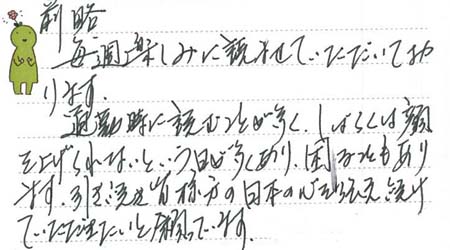 前略
毎週楽しみに読ませていただいてお
ります。
通勤時に読むことが多く、しばらくは顔
を上げられないという日が多くあり、困ることもあり
ます。引き続き皆様方の日本の心を伝え続け
ていただきたいと願っています。